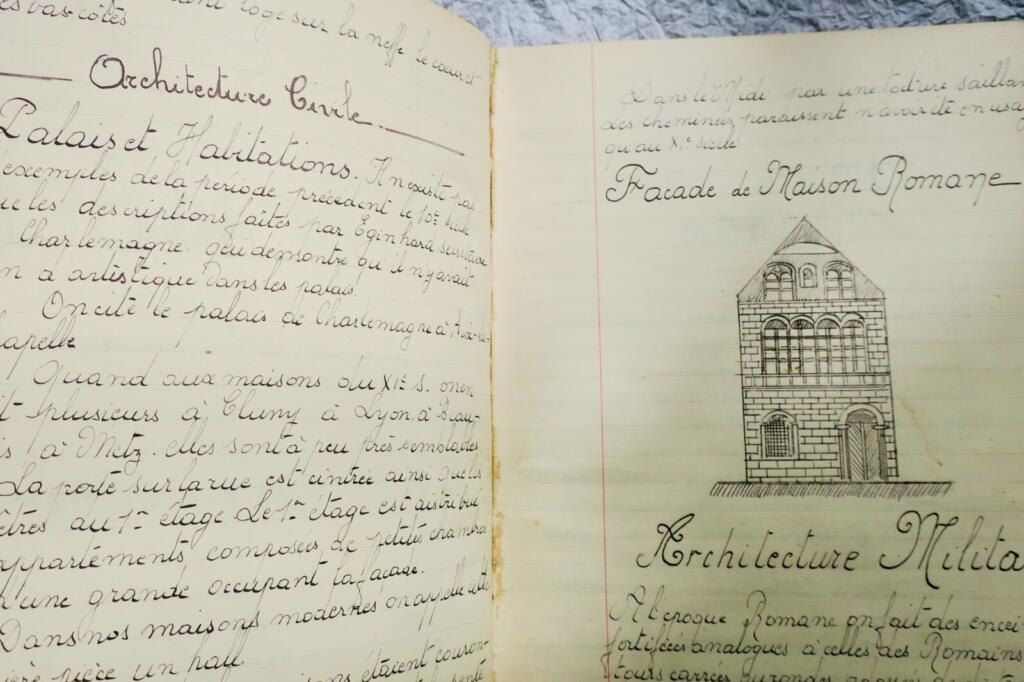 loge sur la neffe le coeur et
les bas côtés
Architecture Civile
Palais et Habitations. Il n'existe pas
d'exemples de la période précédent le 10e siècle
que les descriptions faites par Eginhard secrétaire
Charlemagne qui demontre qu'il n'y avait
n a artistique dans les palais.
On cite le palais de Charlemagne à Aix-la-
apelle
Quand aux maisons du XIe s. on en
it plusieurs à Cluny à Lyon, à Beau-
is à Metz. elles sont à peu près semblables
La porte sur la rue est cintrée ainsi que les
êtres du 1er étage Le 1er étage est distribué
appartements composées, de petites chambres
d'une grande occupant la façade.
Dans nos maisons modernes on appelle cette
ière pièce un hall
étaient couron-
Dans le Midi par une toiture saillan
des cheminées paraissent n'avoir été en usa
qu'au XIe siècle
Facade de Maison Romane
Architecture Milita
A l'époque Romane on fait des encei
fortifiées analogues à celles des Romains
tours carrées ou rondes